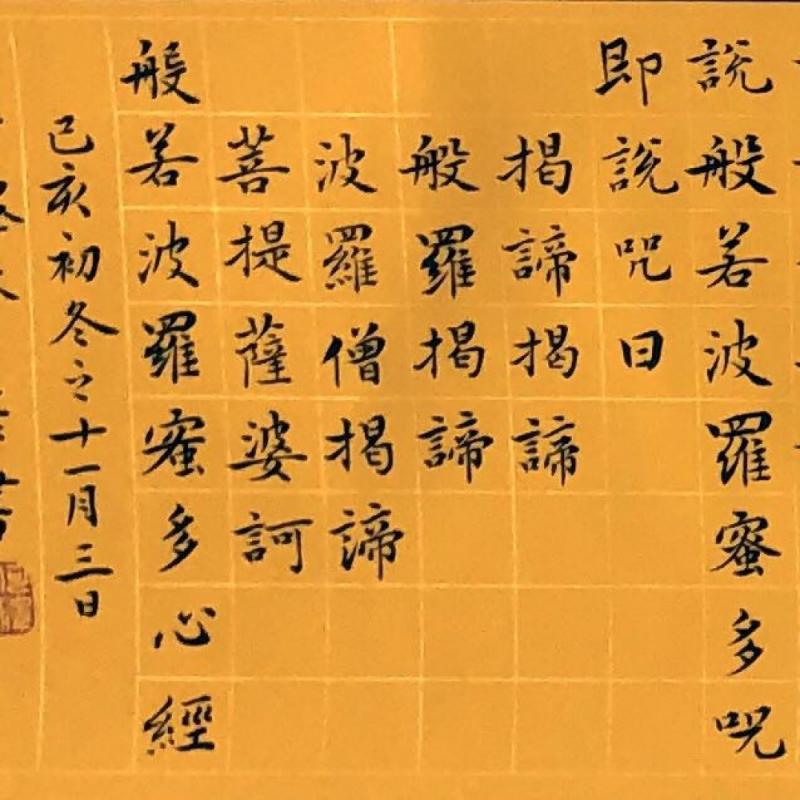 說般若波羅蜜多咒
即說咒曰
揭諦揭諦
般羅揭諦
波羅僧揭諦
菩提薩婆訶
般若波羅蜜多心經
己亥初冬之十一月三日